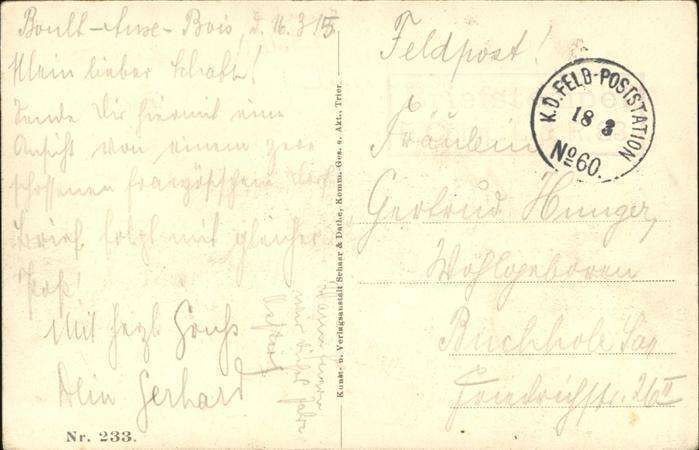 Boult-aux-Bois, d. 16.3.15
Mein lieber Schatz!
Sende Dir hiermit eine
Ansicht von einem zer-
schossenen französischen Dorf
Brief folgt mit gleicher
Post
Mit herzl. Gruß
Dein Gerhard
Nr. 233.
Kunst- u. Verlagsanstalt Schaar & Dathe, Komm.-Ges. a. Akt., Trier.
Feldpost!
K.D.FELD-POSTSTATION
18 3
No 60.
Fräulein
Gertrud Hunger,
Wohlgeboren
Buchholz Sa
Friedrichstr. 26 II